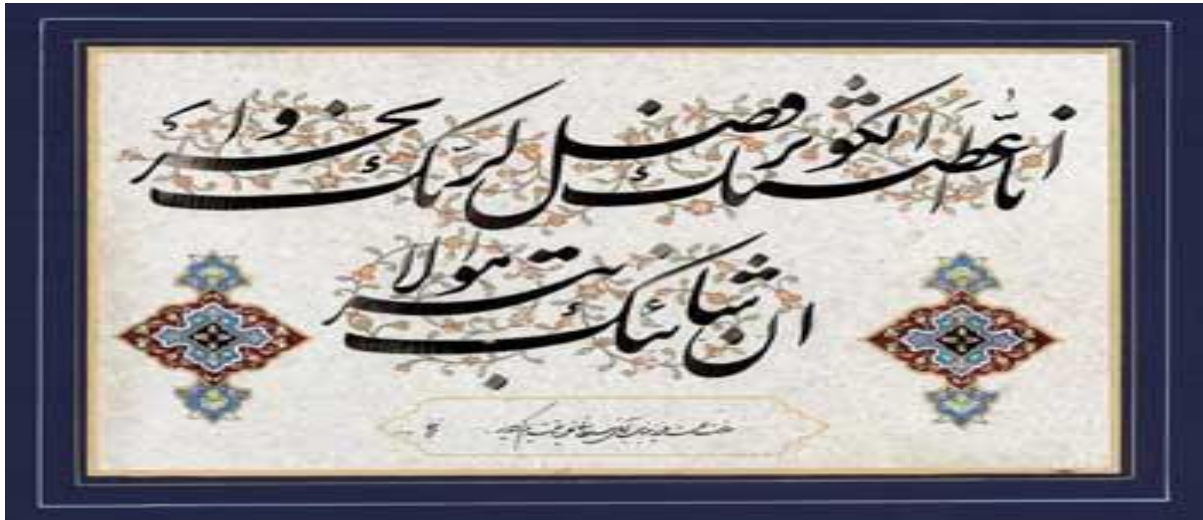 انا اعطیناک الکوثر فصل لربک وانحر
ان شانئک هو الابتر